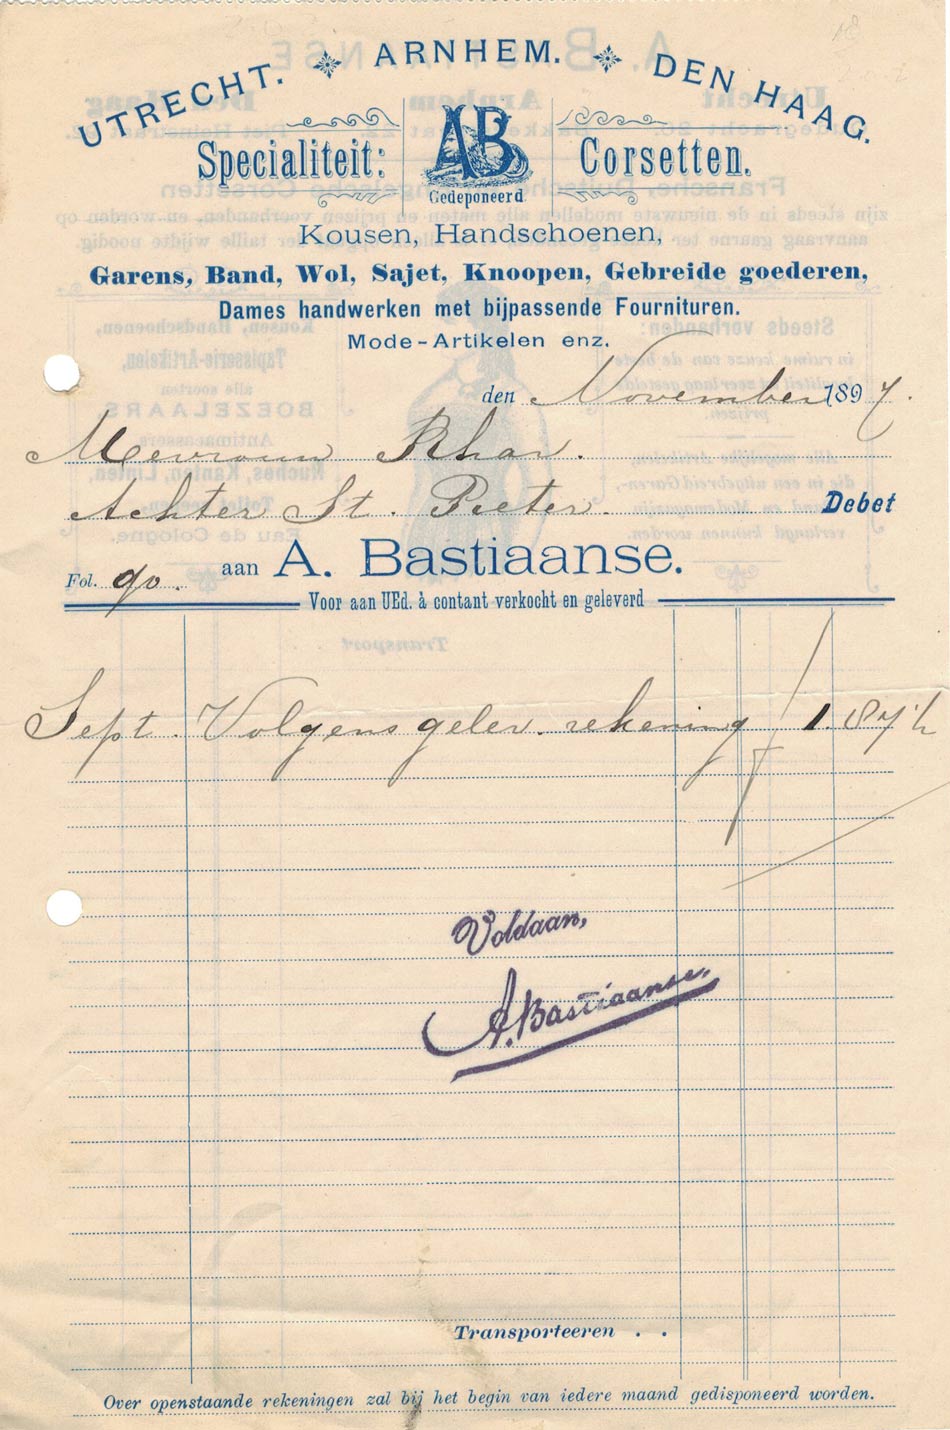 UTRECHT. ARNHEM. DEN HAAG.
Specialiteit: AB Corsetten.
Gedeponeerd
Kousen, Handschoenen,
Garens, Band, Wol, Sajet, Knoopen, Gebreide goederen,
Dames handwerken met bijpassende Fournituren.
Mode-Artikelen enz.
den November 1897.
Mevrouw Rhar.
Achter St. Peeter. Debet
Fol. 90. aan A. Bastiaanse.
Voor aan UEd. à contant verkocht en geleverd
Sept. Volgens gelev. rekening 1.87½
Voldaan,
A. Bastiaanse.
Transporteeren . .
Over openstaande rekeningen zal bij het begin van iedere maand gedisponeerd worden.